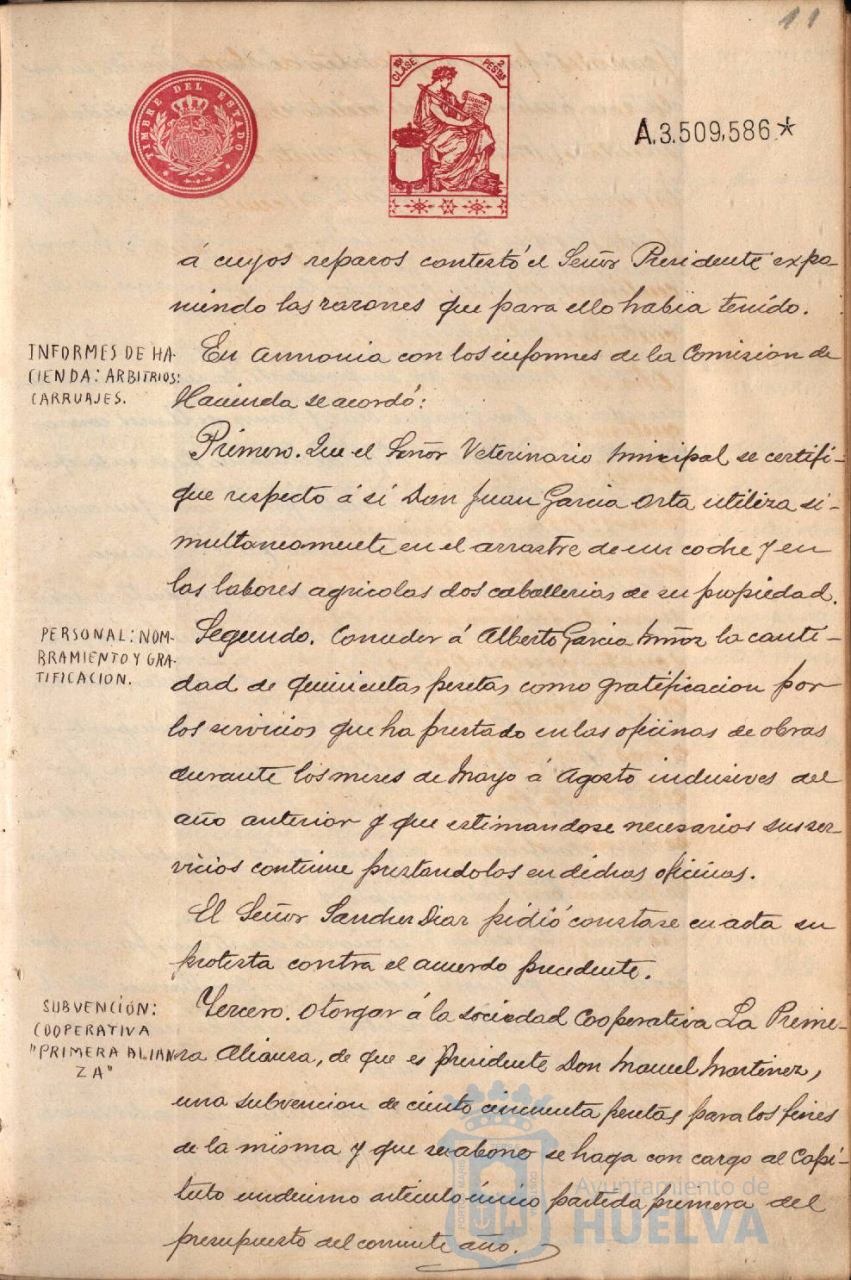 11
TIMBRE DEL ESTADO
10ª CLASE 2 PESTAS
A.3.509,586*
á cuyos reparos contestó el Señor Presidente expo-
niendo las razones que para ello habia tenido.
INFORMES DE HA-
CIENDA: ARBITRIOS:
CARRUAJES.
En armonia con los informes de la Comision de
Hacienda se acordó:
Primero. Que el Señor Veterinario Municipal se certifi-
que respecto á si Don Juan Garcia Orta utiliza si-
multaneamente en el arrastre de un coche y en
las labores agricolas dos caballerias de su propiedad.
PERSONAL: NOM-
BRAMIENTO Y GRA-
TIFICACION.
Segundo. Conceder á Alberto Garcia Muñoz la canti-
dad de quinientas pesetas como gratificacion por
los servicios que ha prestado en las oficinas de obras
durante los meses de Mayo á Agosto inclusives del
año anterior y que estimandose necesarios sus ser-
vicios continue prestandolos en dichas oficinas.
El Señor Sanchez Diaz pidió constase en acta su
protesta contra el acuerdo precedente.
SUBVENCIÓN:
COOPERATIVA
"PRIMERA ALIAN-
ZA"
Tercero. Otorgar á la sociedad Cooperativa La Prime-
ra Alianza, de que es Presidente Don Manuel Martinez,
una subvencion de ciento cincuenta pesetas para los fines
de la misma y que su abono se haga con cargo al Capi-
tulo undecimo articulo único partida primera del
presupuesto del corriente año.
Ayuntamiento de
HUELVA